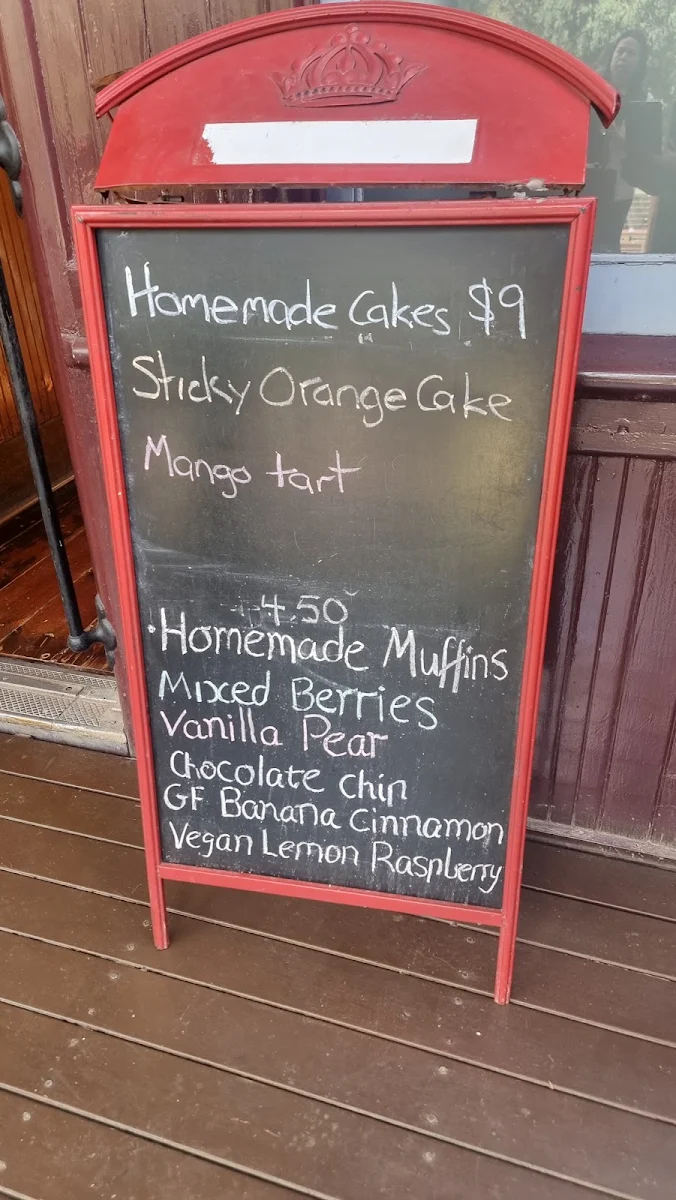 Homemade Cakes $9
Sticky Orange Cake
Mango tart
4.50
·Homemade Muffins
Mixed Berries
Vanilla Pear
Chocolate chip
GF Banana cinnamon
Vegan Lemon Raspberry